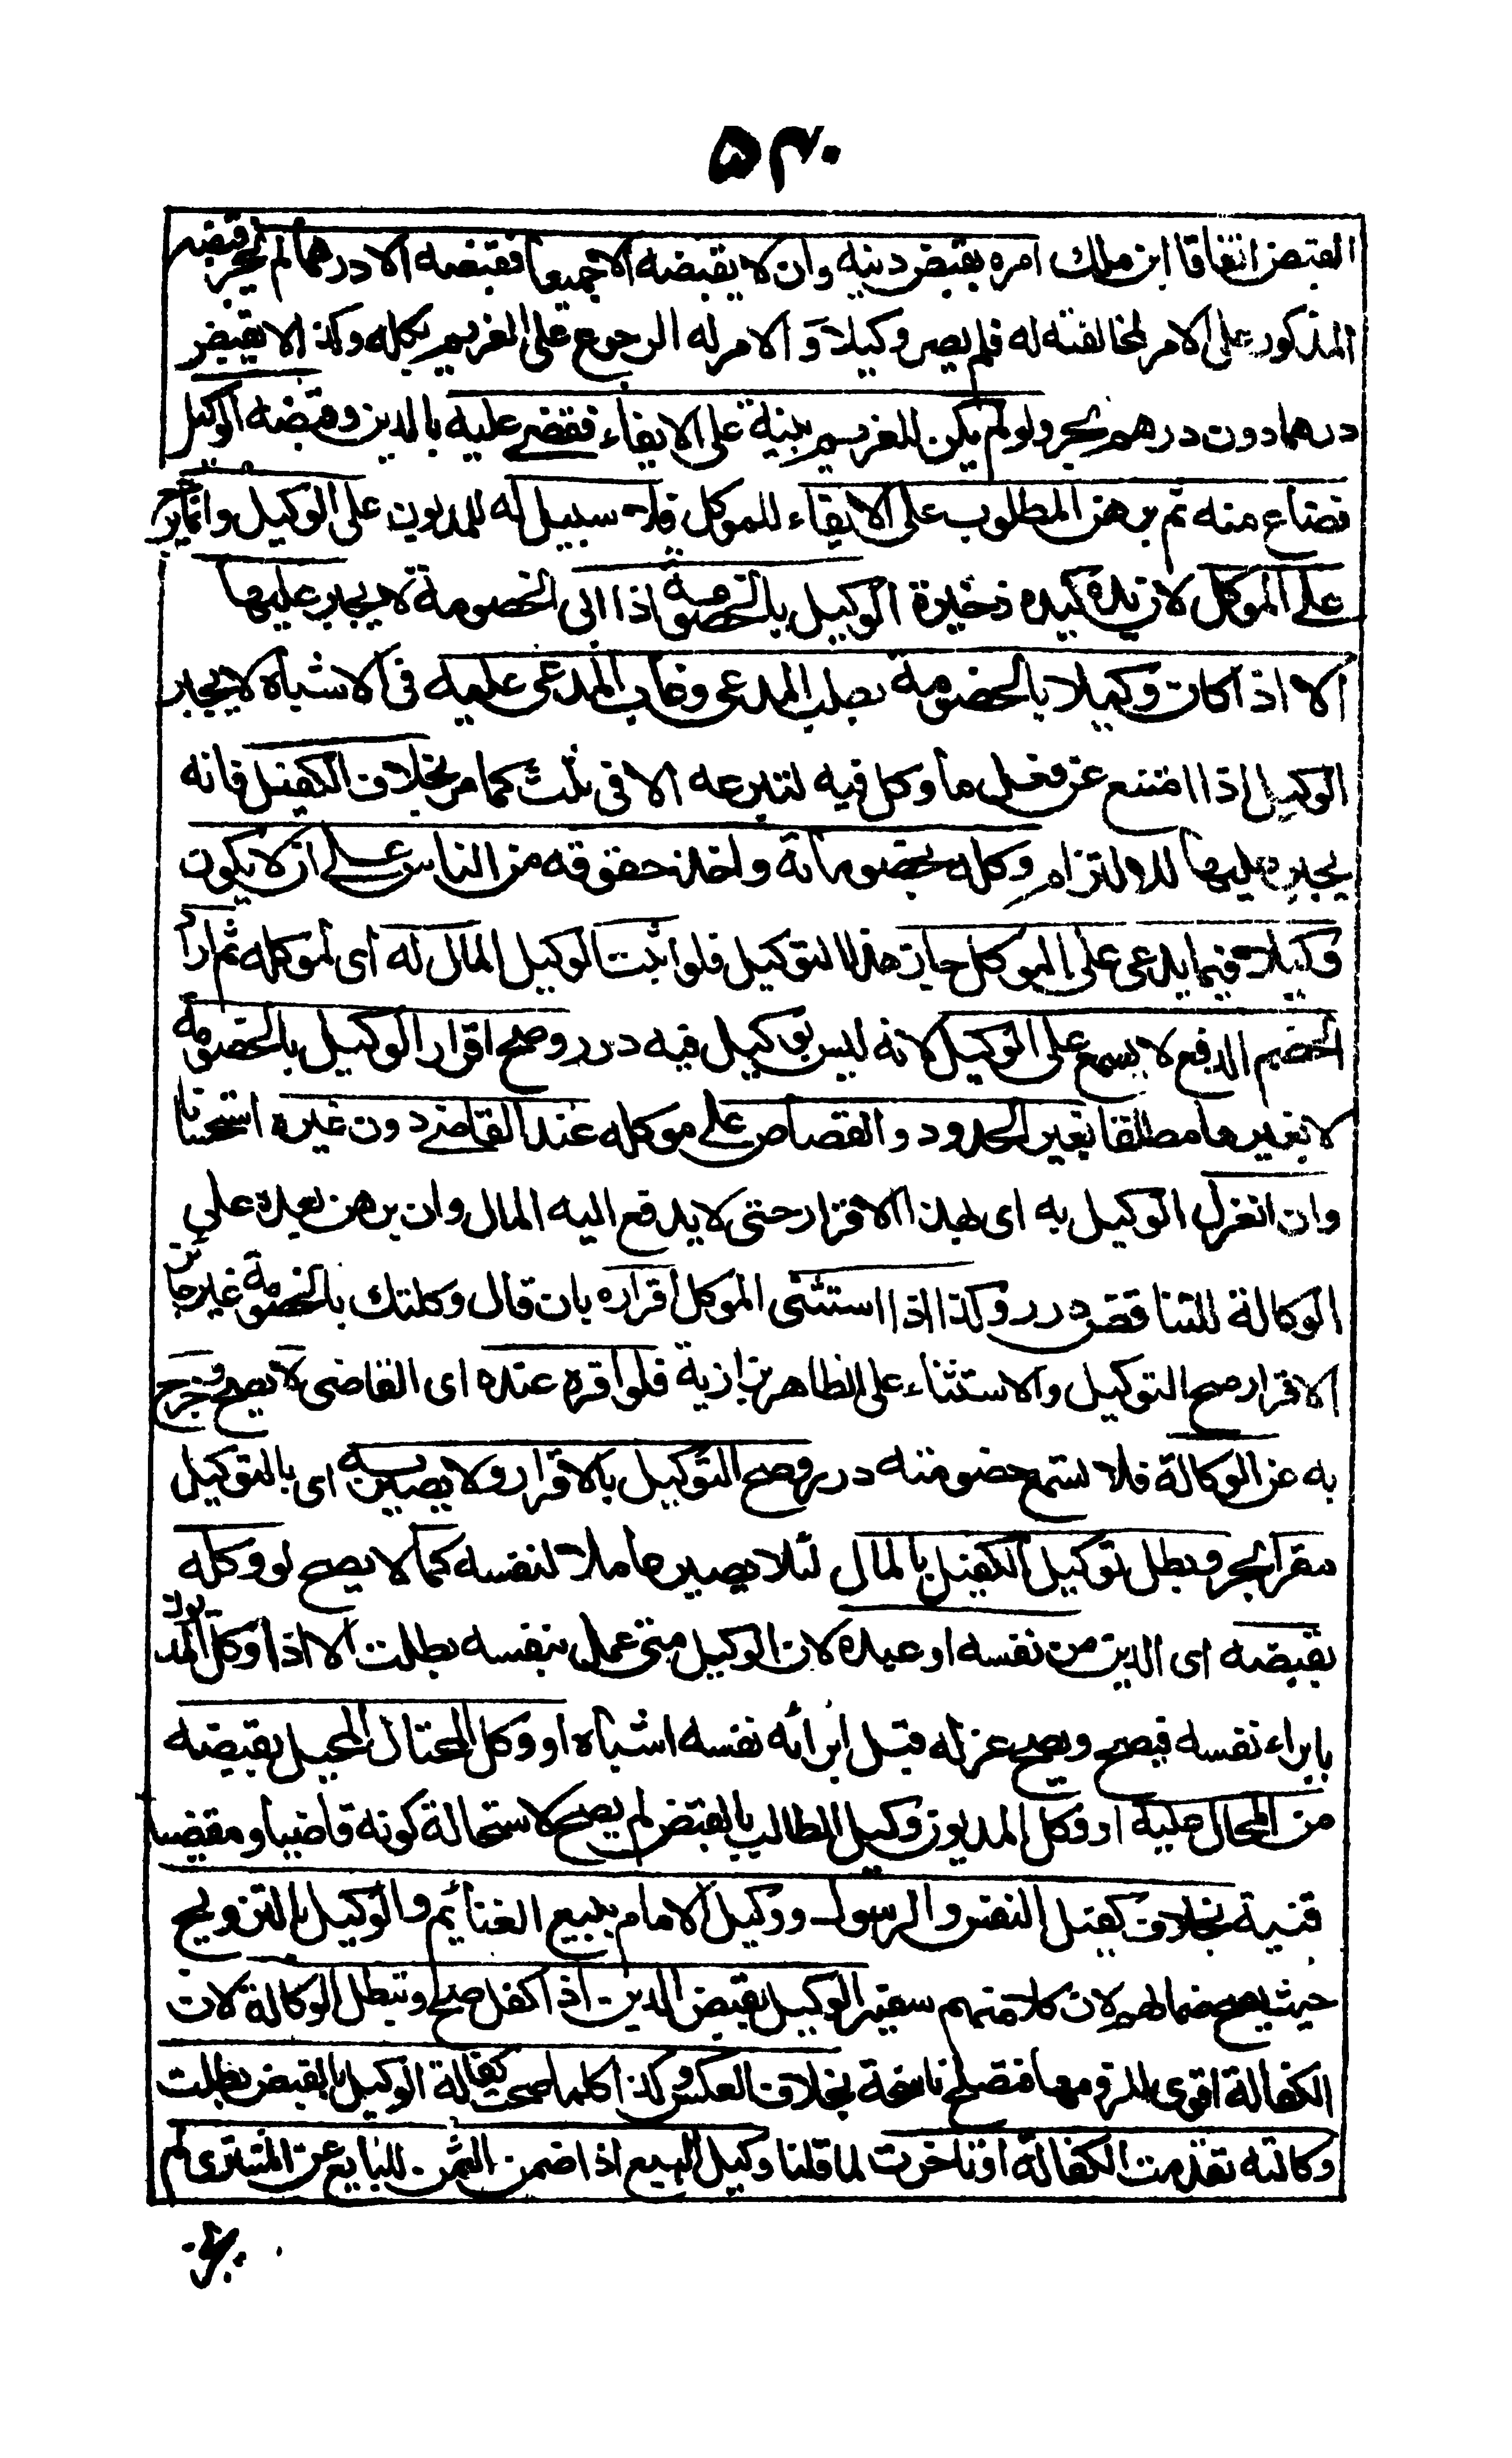 ٥٣٠
القبض اتفاقا ابن ملك امره بقبض دينه وان لا يقبضه الا جميعا فقبضه الا درهما لم يجز قبضه
المذكور على الامر لمخالفته له فلم يصر وكيلا و الامر له الرجوع على الغريم بكله وكذا لا يقبض
درهما دون درهم بحر ولو لم يكن للغريم بينة على الايفاء فقضى عليه بالدين وقبضه الوكيل
فضاع منه ثم برهن المطلوب على الايفاء للموكل فلا سبيل له للمديون على الوكيل وانما يرجع
على الموكل لان يده كيده ذخيرة الوكيل بالخصومة اذا ابى الخصومة لا يجبر عليها
الا اذا كان وكيلا بالخصومة بطلب المدعى وغاب المدعى عليه فى الاشباه لا يجبر
الوكيل اذا امتنع عن فعل ما وكل فيه لتبرعه الا فى ثلث كما مر بخلاف الكفيل فانه
يجبر عليها للالتزام وكله بخصوماته واخذ حقوقه من الناس على ان لا يكون
وكيلا فيما يدعى على الموكل جاز هذا التوكيل فلو اثبت الوكيل المال له اى لموكله ثم اراد
الخصم الدفع لا يسمع على الوكيل لانه ليس بوكيل فيه درر وصح اقرار الوكيل بالخصومة
لا بغيرها مطلقا بغير الحدود والقصاص على موكله عند القاضى دون غيره استحسانا
وان انعزل الوكيل به اى بهذا الاقرار حتى لا يدفع اليه المال وان برهن بعده على
الوكالة للتناقض درر وكذا اذا استثنى الموكل اقراره بان قال وكلتك بالخصومة غير جائز
الاقرار صح التوكيل والاستثناء على الظاهر بزازية فلو اقر عنده اى القاضى لا يصح وخرج
به عن الوكالة فلا تسمع خصومته درر وصح التوكيل بالاقرار ولا يصير به اى بالتوكيل
مقرا بحر وبطل توكيل الكفيل بالمال لئلا يصير عاملا لنفسه كما لا يصح لو وكله
بقبضه اى الدين من نفسه او عبده لان الوكيل متى عمل بنفسه بطلت الا اذا وكل المديون
بابراء نفسه فيصح ويصح عزله قبل ابرائه نفسه اشباه او وكل المحتال المحيل بقبضه
من المحال عليه او وكل المديون وكيل المطالب بالقبض لم يصح لاستحالة كونه قاضيا ومقتضيا
قنية بخلاف كفيل النفس والرسول ووكيل الامام ببيع الغنائم والوكيل بالتزويج
حيث يصح ضمانهم لان كلا منهم سفير الوكيل بقبض الدين اذا كفل صح وتبطل الوكالة لان
الكفالة اقوى للزومها فتصلح ناسخة بخلاف العكس وكذا كلما صحت كفالة الوكيل بالقبض بطلت
وكالته تقدمت الكفالة او تاخرت لما قلنا وكيل البيع اذا ضمن الثمن للبايع عن المشترى لم